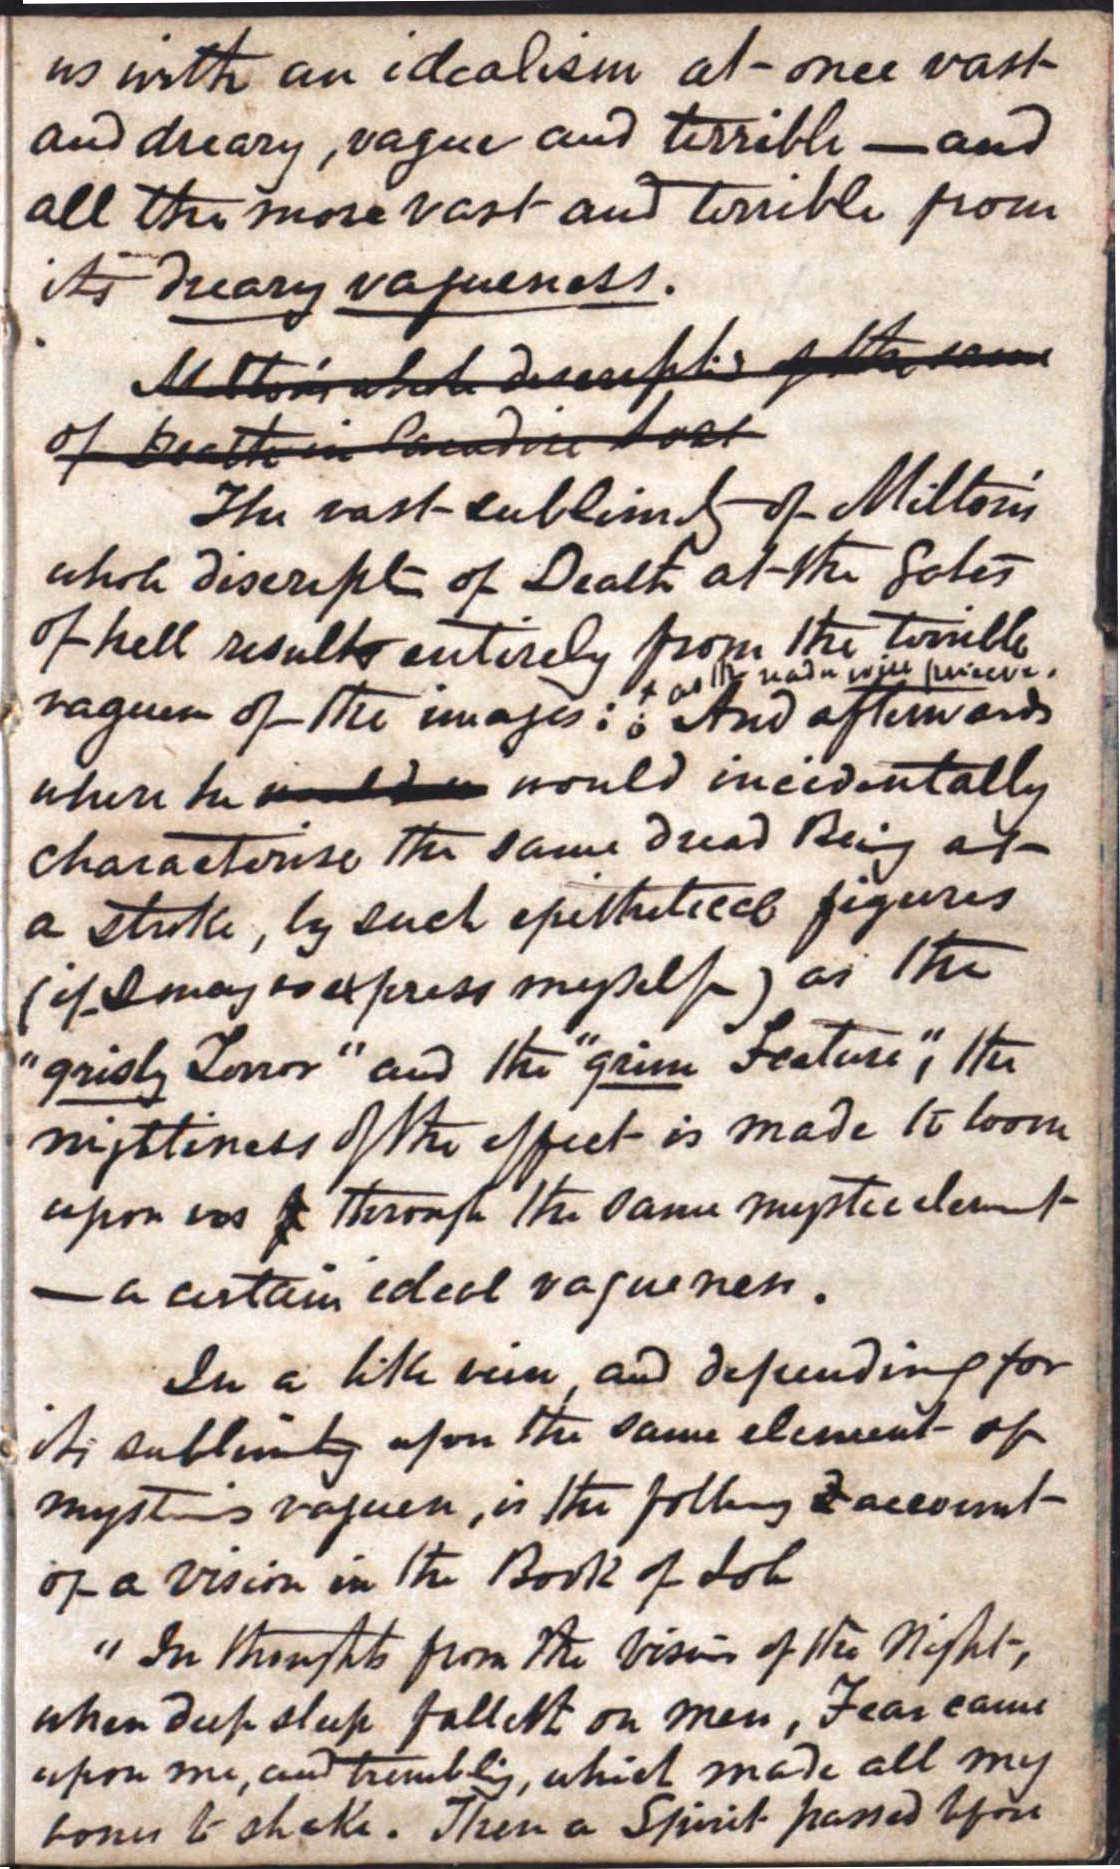 us with an idealism at once vast
and dreary, vague and terrible — and
all the more vast and terrible from
its dreary vagueness.
Milton's whole descriptio of the same
of Death in Paradise Lost
The vast sublimity of Milton's
whole discript of Death at the Gates
of hell results entirely from the terrible
+ as the reader will perceive.
vaguen of the images: : And afterwards
where he would incidentally
characterise the same dread Being at
a stroke, by such epithetical figures
(if I may so express myself) as the
"grisly Terror" and the "grim Feature", the
mightiness of the effect is made to loom
upon us through the same mystic element
— a certain ideal vagueness.
In a like vein, and depending for
its sublimity upon the same element of
mysterious vaguen, is the follwng account
of a vision in the Book of Job
"In thoughts from the vision of the Night,
when deep sleep falleth on men, Fear came
upon me, and tremblig, which made all my
bones to shake. Then a Spirit passed before